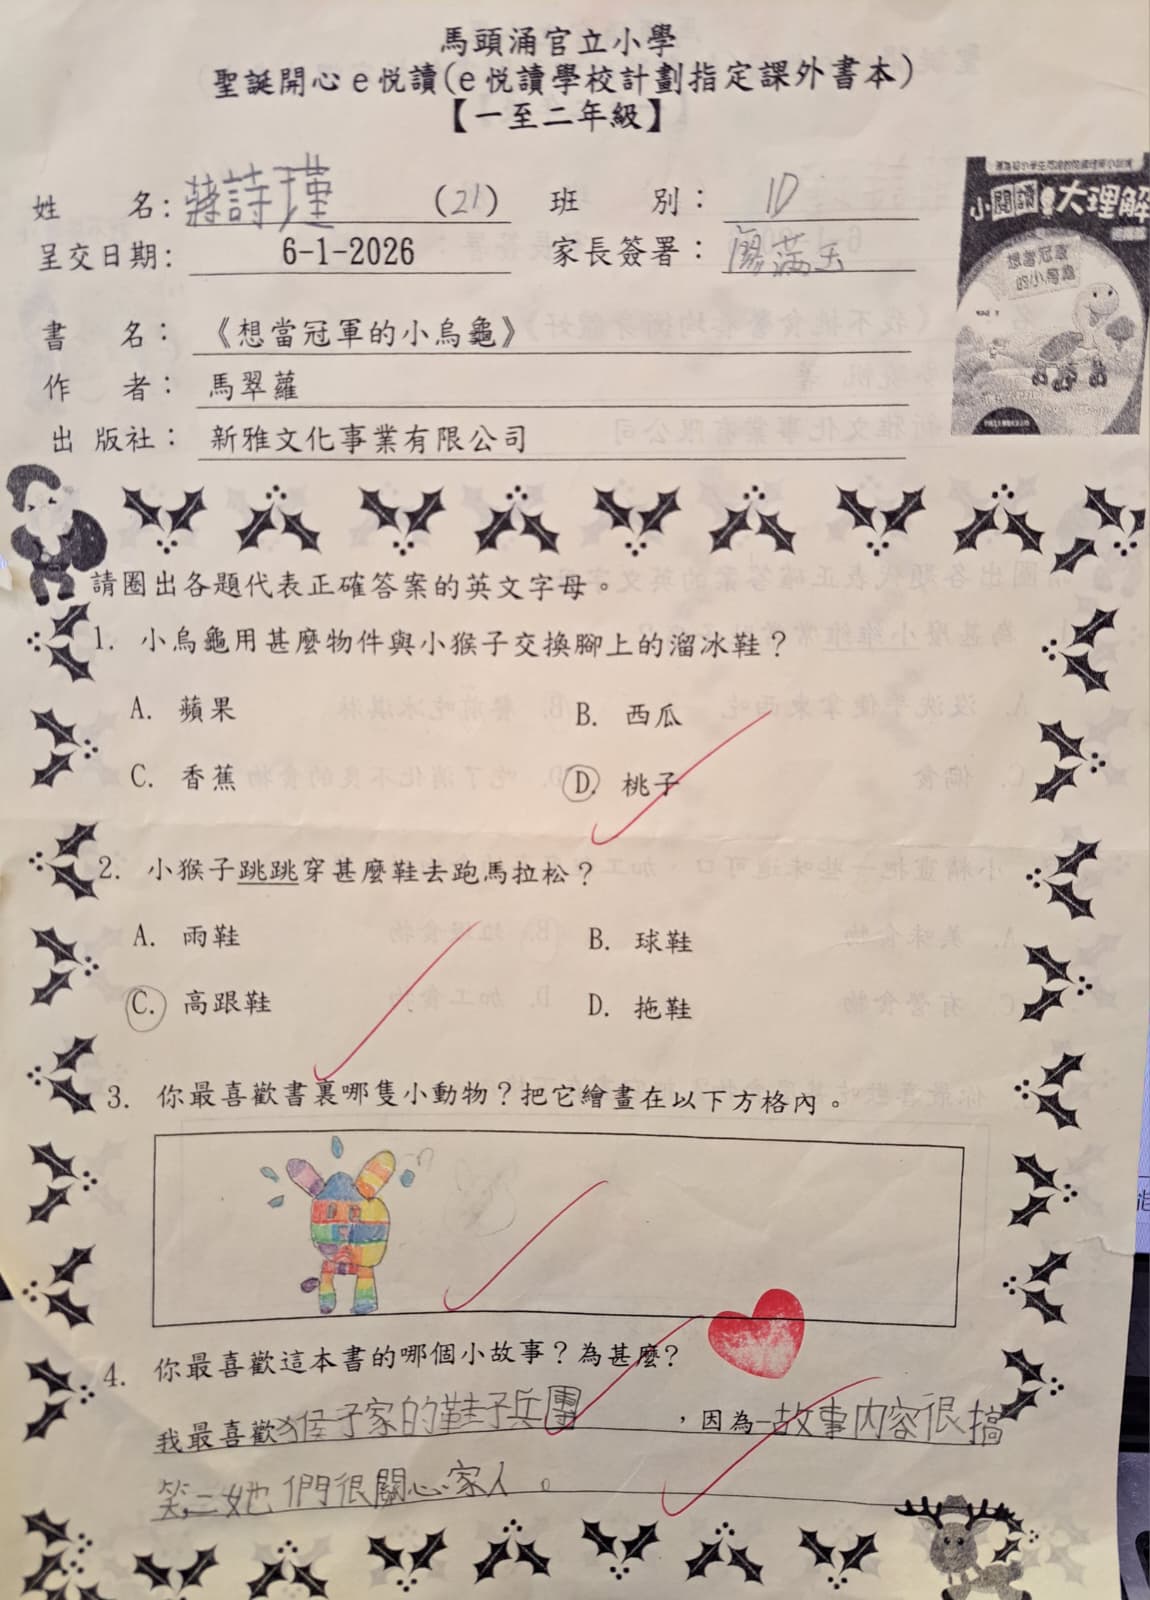 馬頭涌官立小學
聖誕開心e悦讀(e悦讀學校計劃指定課外書本)
【一至二年級】
姓 名: 蔣詩瑾 (21) 班 別: 1D
呈交日期: 6-1-2026 家長簽署: 廖滿玉
小閱讀大理解
想當冠軍
的小烏龜
書 名: 《想當冠軍的小烏龜》
作 者: 馬翠蘿
出 版社: 新雅文化事業有限公司
請圈出各題代表正確答案的英文字母。
1. 小烏龜用甚麼物件與小猴子交換腳上的溜冰鞋?
A. 蘋果 B. 西瓜
C. 香蕉 D. 桃子
2. 小猴子跳跳穿甚麼鞋去跑馬拉松?
A. 雨鞋 B. 球鞋
C. 高跟鞋 D. 拖鞋
3. 你最喜歡書裏哪隻小動物?把它繪畫在以下方格內。
4. 你最喜歡這本書的哪個小故事?為甚麼?
我最喜歡猴子家的鞋子兵團,因為一故事內容很搞
笑二她們很關心家人。